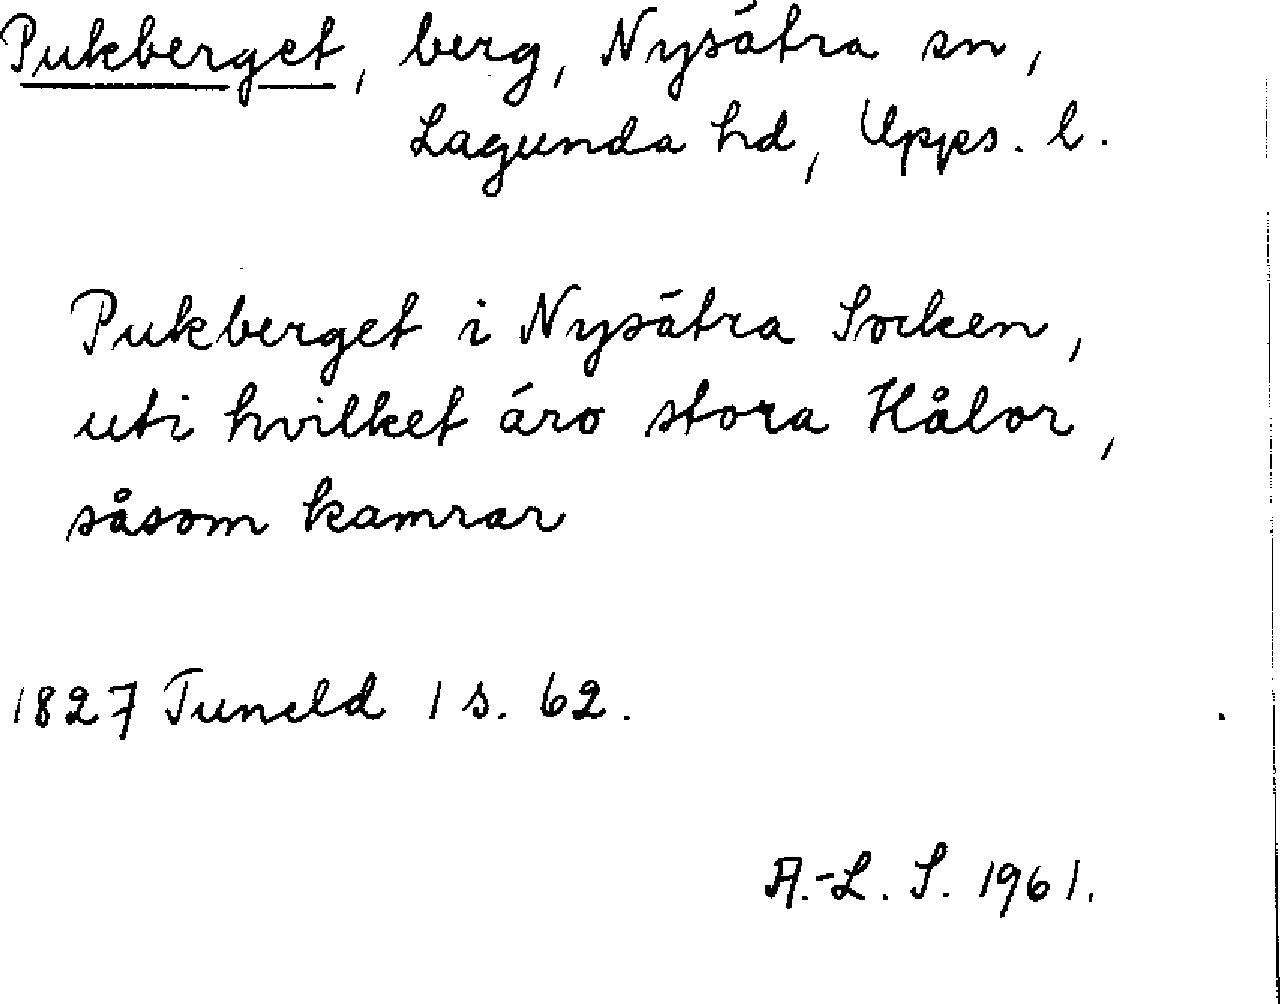 Pukberget, berg, Nysätra sn,
Lagunda hd, Upps. l.
Pukberget i Nysätra Socken,
uti hvilket äro stora Hålor,
såsom kamrar
1827 Tuneld 1 s. 62.
A.-L. S. 1961.